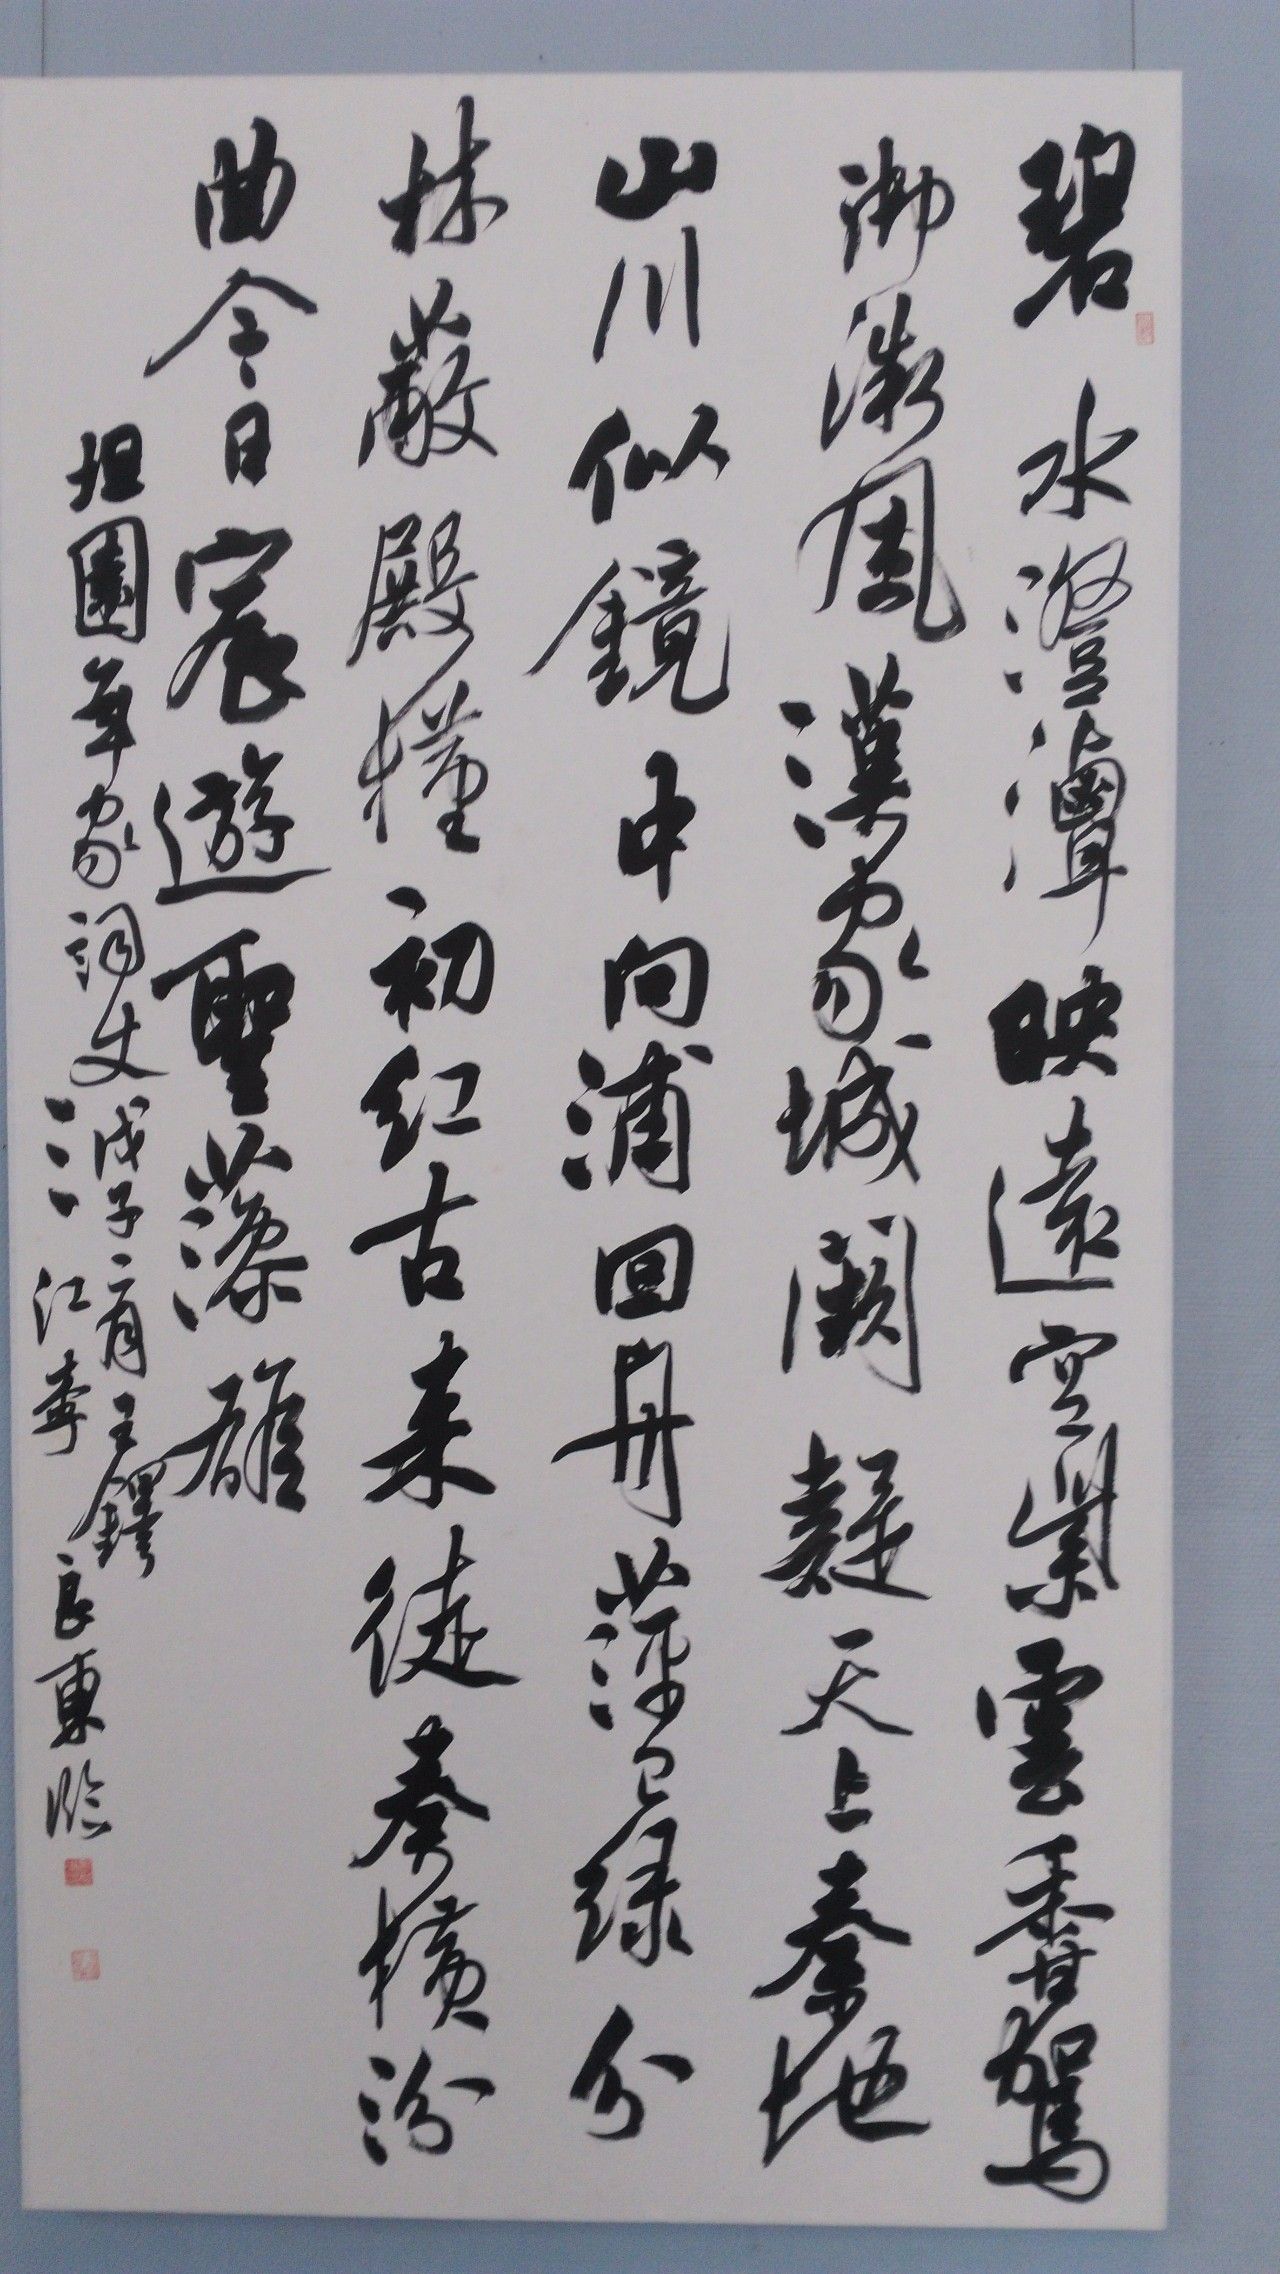 碧水澄潭映遠空紫雲香駕
御微風漢家城闕疑天上秦地
山川似鏡中向浦回舟萍已绿分
林蔽殿槿初红古来徒奏橫汾
曲今日宸遊聖藻雄
坦園年家詞丈戊子二月王鐸
江寧良東臨